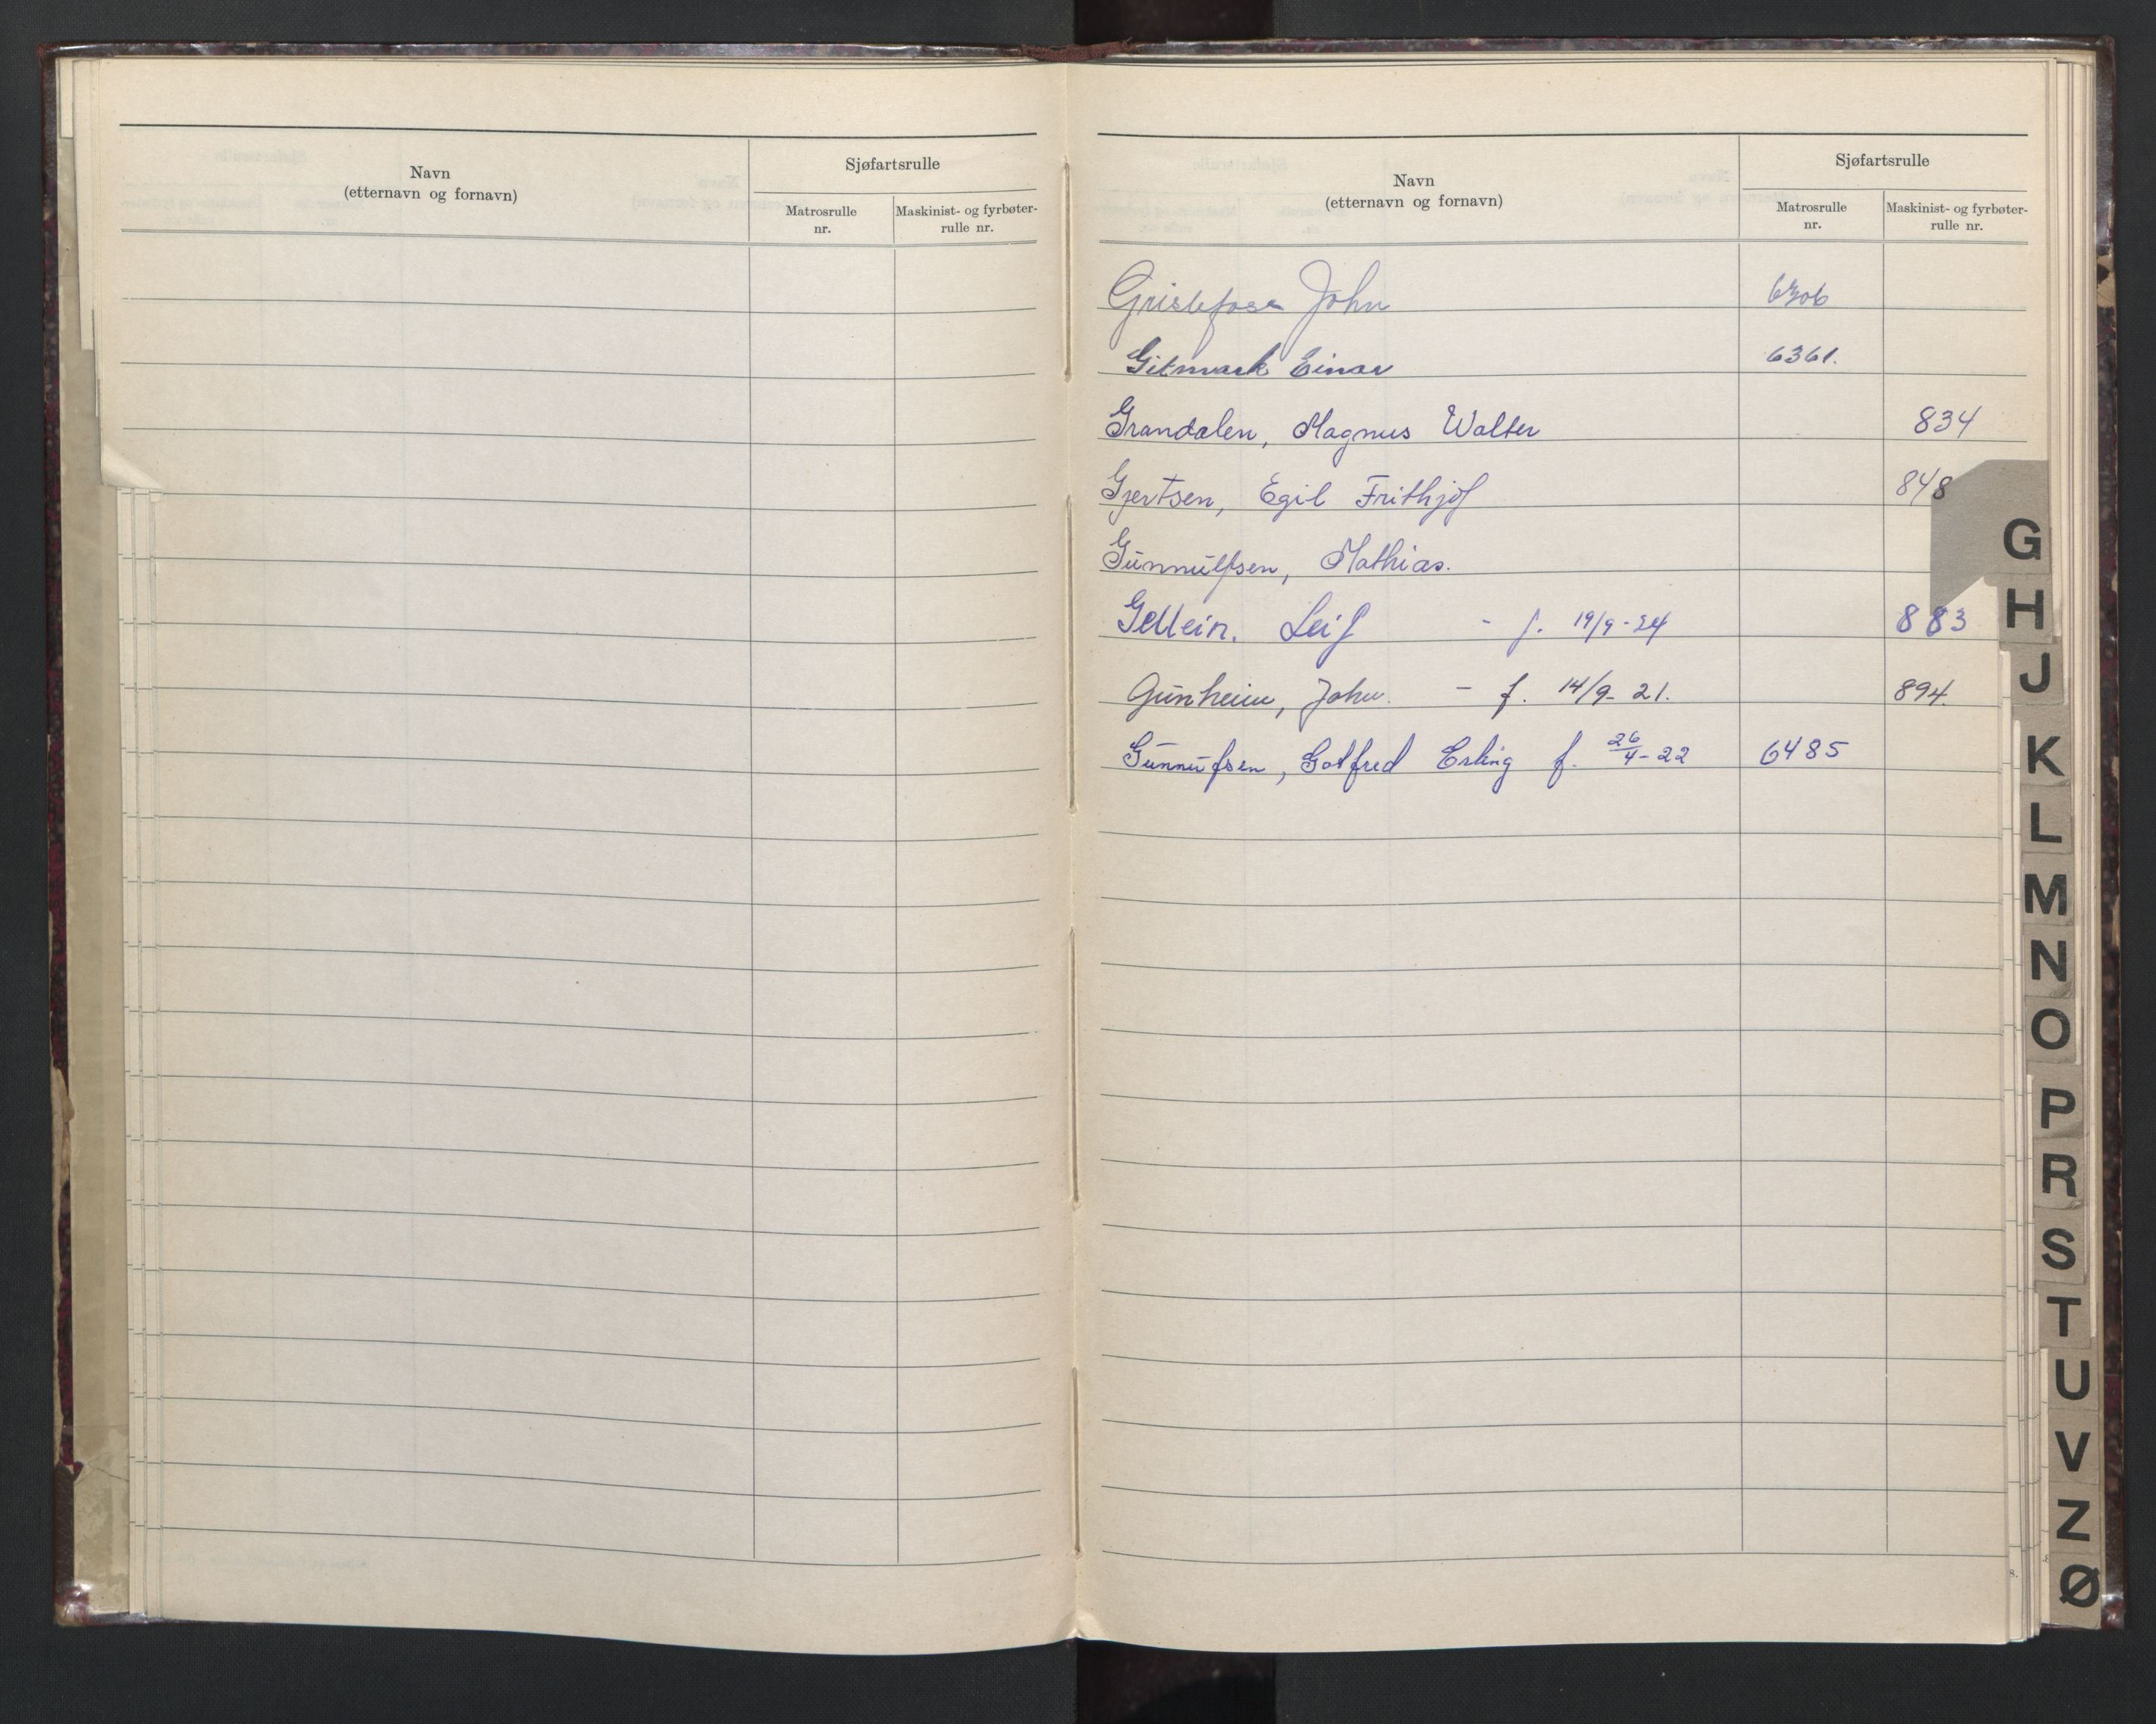 Navn
(etternavn og fornavn)
Sjøfartsrulle
Matrosrulle
nr.
Maskinist- og fyrbøter-
rulle nr.
Navn
(etternavn og fornavn)
Sjøfartsrulle
Matrosrulle
nr.
Maskinist- og fyrbøter-
rulle nr.
John 6306
Gitmark Einar 6361.
Grandalen, Magnus Walter 834
Gjertsen, Egil Frithjof 848
Gunnulfsen, Mathias.
Gellein, Leif - f. 19/9-24 883
Gunheim, John. - f. 14/9-21. 894.
Gunnufsen, Gotfred Erling f. 26/4-22 6485
G
H
J
K
L
M
N
O
P
R
S
T
U
V
Z
Ø